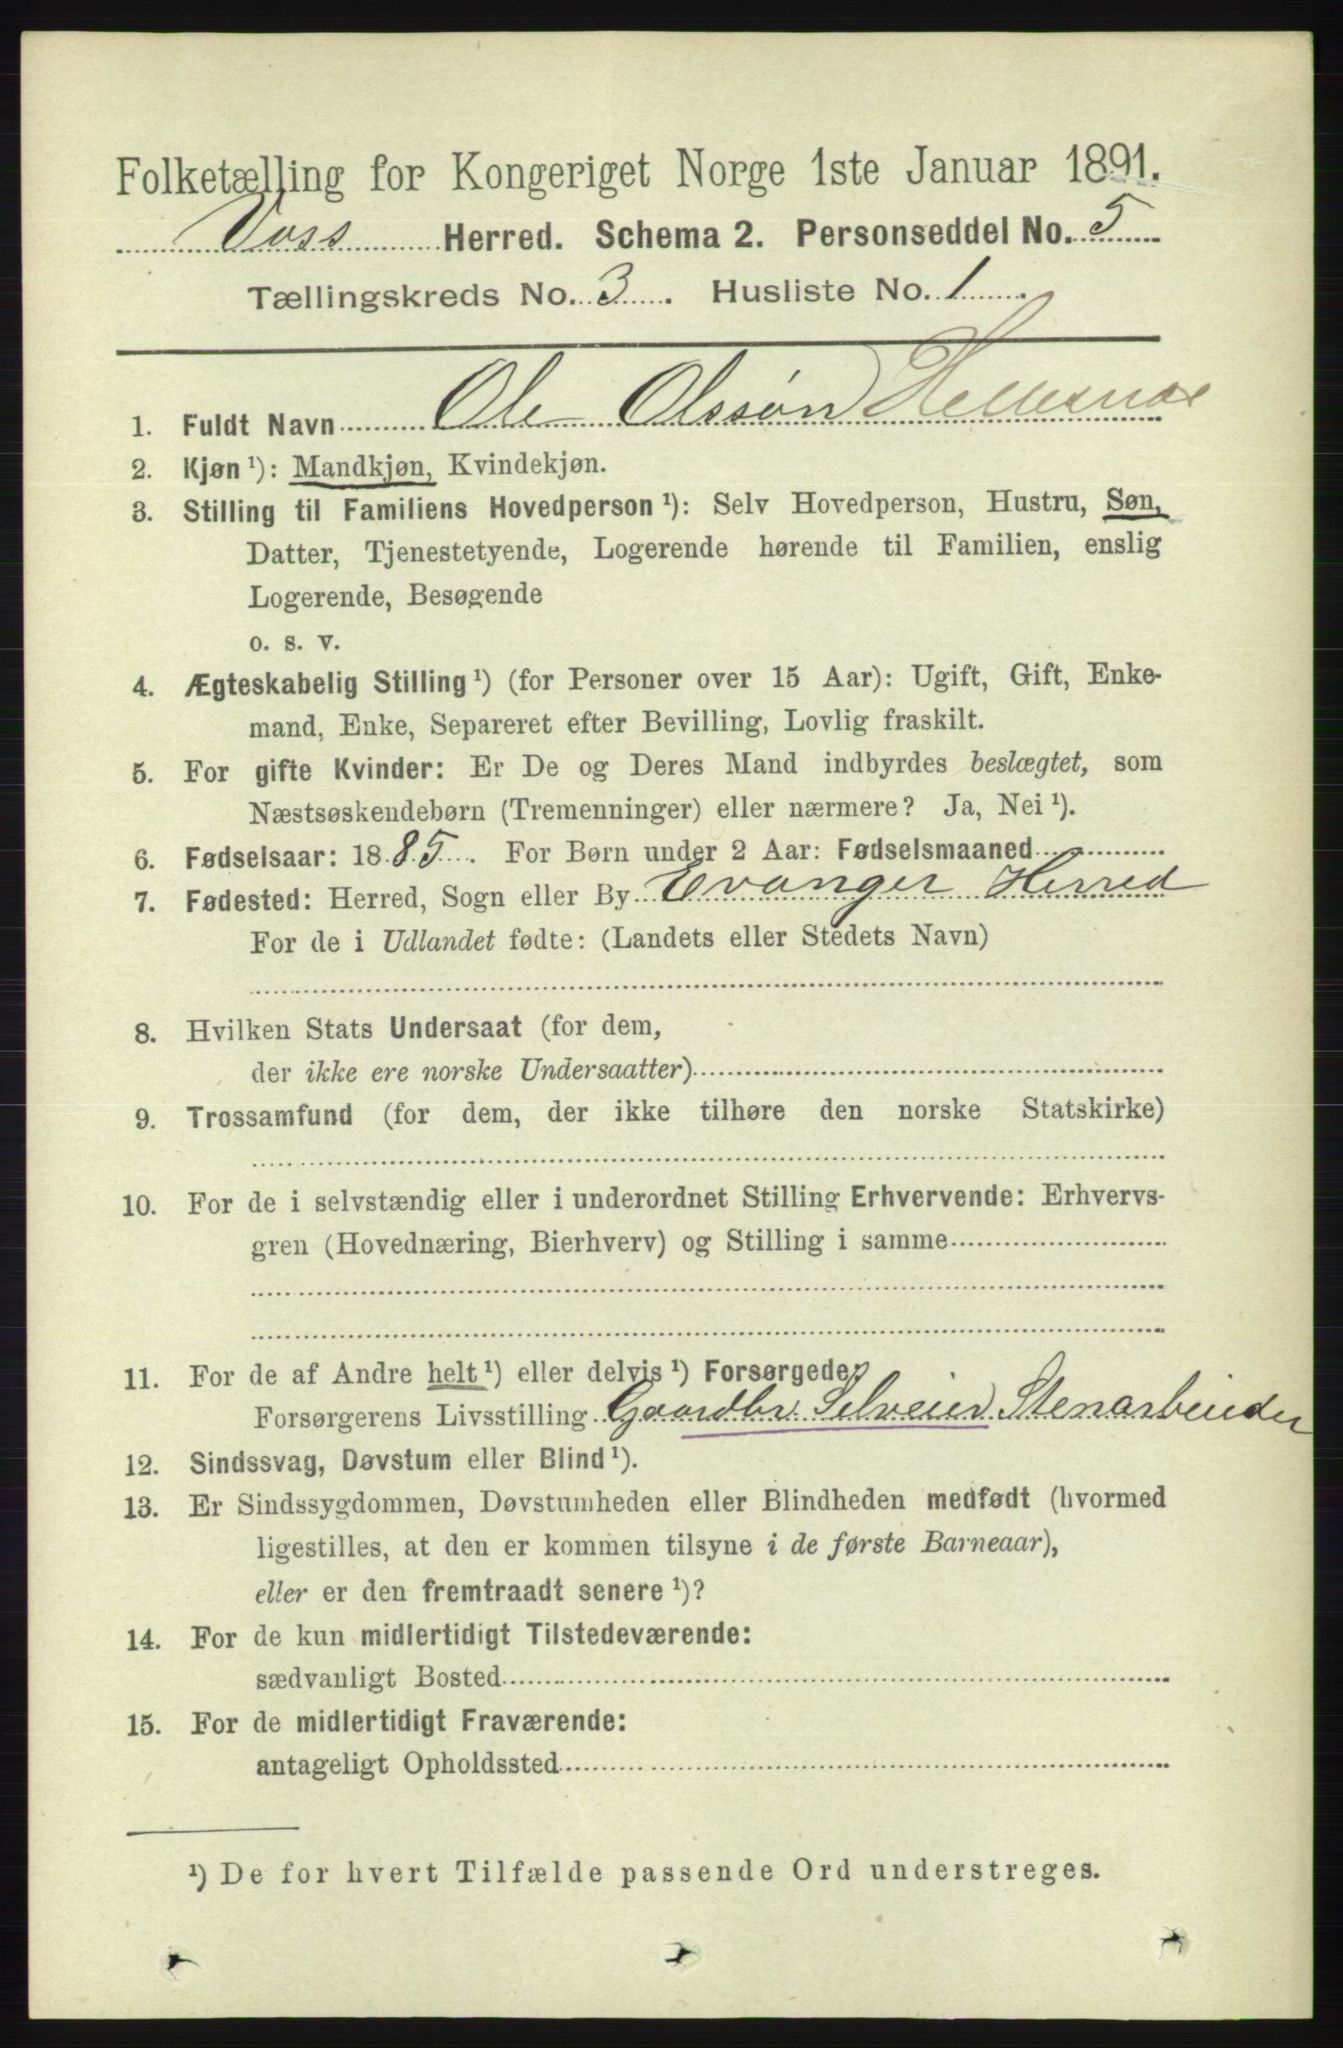 Folketælling for Kongeriget Norge 1ste Januar 1891.
Voss Herred. Schema 2. Personseddel No. 5
Tællingskreds No. 3. Husliste No. 1.
1. Fuldt Navn Ole Olssøn Hellesnæs
2. Kjøn ¹): Mandkjøn, Kvindekjøn.
3. Stilling til Familiens Hovedperson ¹): Selv Hovedperson, Hustru, Søn,
Datter, Tjenestetyende, Logerende hørende til Familien, enslig
Logerende, Besøgende
o. s. v.
4. Ægteskabelig Stilling ¹) (for Personer over 15 Aar): Ugift, Gift, Enke-
mand, Enke, Separeret efter Bevilling, Lovlig fraskilt.
5. For gifte Kvinder: Er De og Deres Mand indbyrdes beslægtet, som
Næstsøskendebørn (Tremenninger) eller nærmere? Ja, Nei ¹).
6. Fødselsaar: 1885. For Børn under 2 Aar: Fødselsmaaned
7. Fødested: Herred, Sogn eller By Evanger Herred
For de i Udlandet fødte: (Landets eller Stedets Navn)
8. Hvilken Stats Undersaat (for dem,
der ikke ere norske Undersaatter)
9. Trossamfund (for dem, der ikke tilhøre den norske Statskirke)
10. For de i selvstændig eller i underordnet Stilling Erhvervende: Erhvervs-
gren (Hovednæring, Bierhverv) og Stilling i samme
11. For de af Andre helt ¹) eller delvis ¹) Forsørgede,
Forsørgerens Livsstilling Gaardbr. Selveier Stenarbeider
12. Sindssvag, Døvstum eller Blind ¹).
13. Er Sindssygdommen, Døvstumheden eller Blindheden medfødt (hvormed
ligestilles, at den er kommen tilsyne i de første Barneaar),
eller er den fremtraadt senere ¹)?
14. For de kun midlertidigt Tilstedeværende:
sædvanligt Bosted
15. For de midlertidigt Fraværende:
antageligt Opholdssted
¹) De for hvert Tilfælde passende Ord understreges.